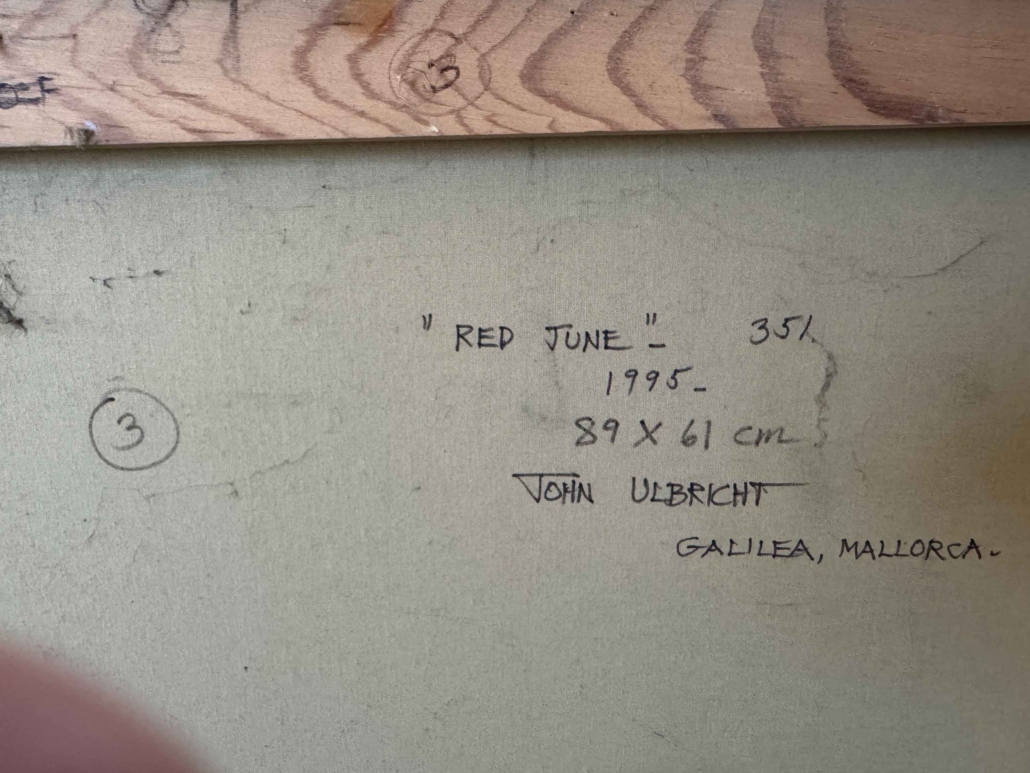 3
"RED JUNE"-
1995-
3
89 X 61 cm
JOHN ULBRICHT
GALILEA, MALLORCA-